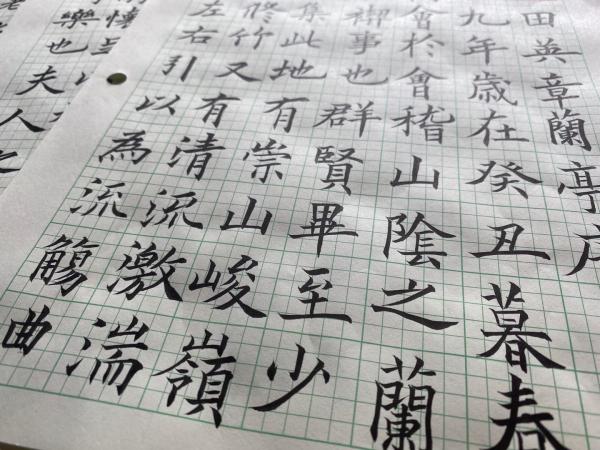 田英章蘭亭序
九年歲在癸丑暮春
會於會稽山陰之蘭
禊事也群賢畢至少
集此地有崇山峻嶺
修竹又有清流激湍
左右引以為流觴曲
樂也夫人之